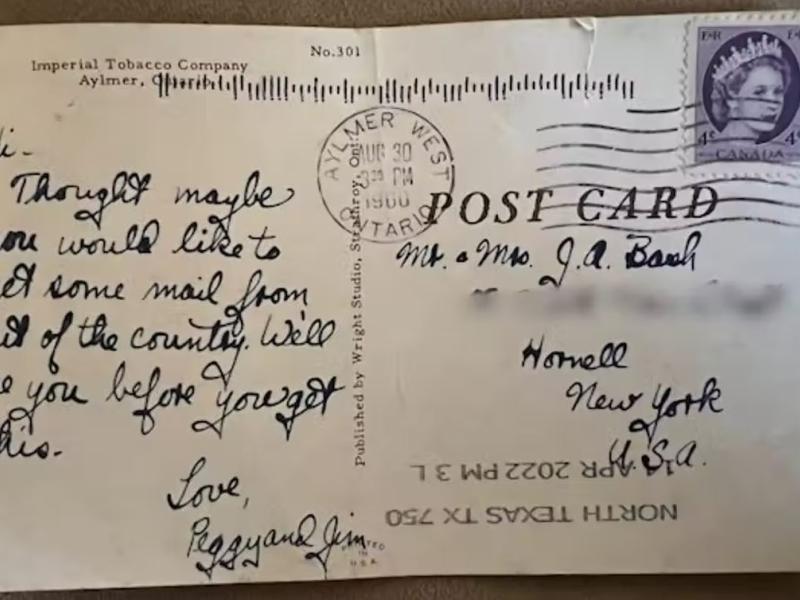 No.301
Imperial Tobacco Company
Aylmer, Ontario
i-
Thought maybe
ou would like to
et some mail from
ut of the country. We'll
e you before you get
his.
Love,
Peggy and Jim
Published by Wright Studio, Strathroy, Ont.
PRINTED
IN
U.S.A.
AYLMER WEST
AUG 30
PM
1960
ONTARIO
4¢ 4¢
CANADA
POST CARD
Mr. & Mrs. J.A. Bash
Hornell
New York
U.S.A.
NORTH TEXAS TX 750
APR 2022 PM 3 L